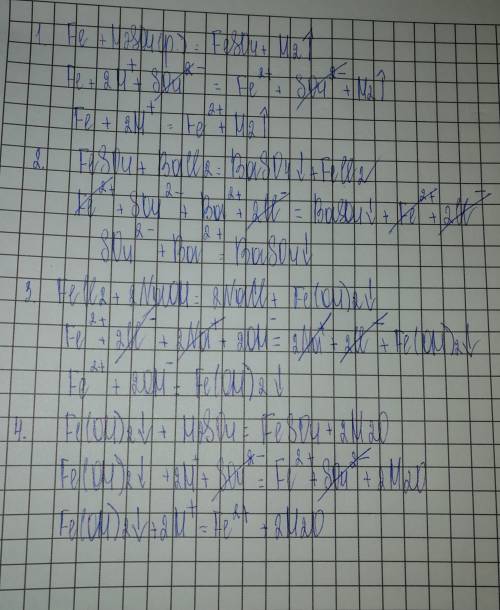 1. Fe + H2SO4(р) = FeSO4 + H2↑
Fe + 2H⁺ + SO4²⁻ = Fe²⁺ + SO4²⁻ + H2↑
Fe + 2H⁺ = Fe²⁺ + H2↑
2. FeSO4 + BaCl2 = BaSO4↓ + FeCl2
Fe²⁺ + SO4²⁻ + Ba²⁺ + 2Cl⁻ = BaSO4↓ + Fe²⁺ + 2Cl⁻
SO4²⁻ + Ba²⁺ = BaSO4↓
3 FeCl2 + 2NaOH = 2NaCl + Fe(OH)2↓
Fe²⁺ + 2Cl⁻ + 2Na⁺ + 2OH⁻ = 2Na⁺ + 2Cl⁻ + Fe(OH)2↓
Fe²⁺ + 2OH⁻ = Fe(OH)2↓
4. Fe(OH)2↓ + H2SO4 = FeSO4 + 2H2O
Fe(OH)2↓ + 2H⁺ + SO4²⁻ = Fe²⁺ + SO4²⁻ + 2H2O
Fe(OH)2↓ + 2H⁺ = Fe²⁺ + 2H2O